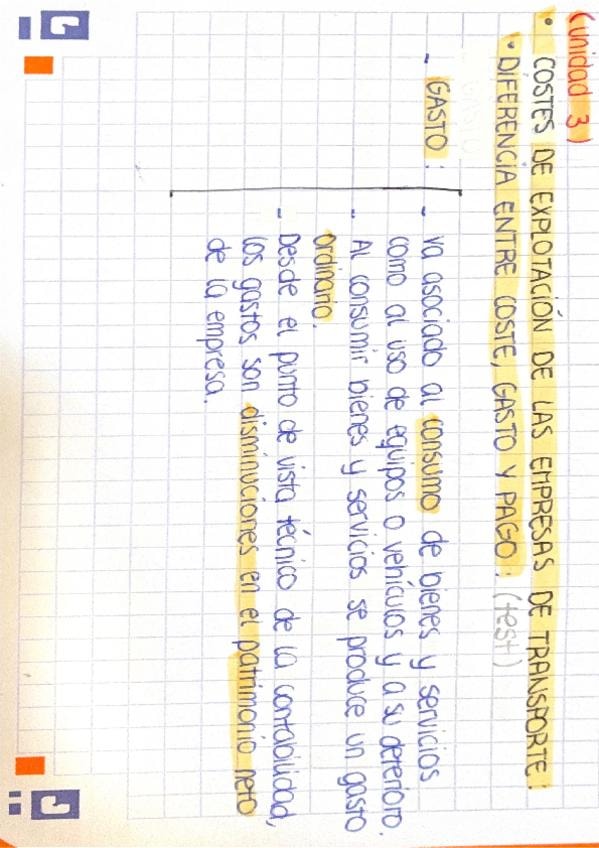 (unidad 3)
• COSTES DE EXPLOTACIÓN DE LAS EMPRESAS DE TRANSPORTE:
• DIFERENCIA ENTRE COSTE, GASTO Y PAGO: (test)
- GASTO:
- Va asociado al consumo de bienes y servicios
como al uso de equipos o vehículos y a su deterioro.
- Al consumir bienes y servicios se produce un gasto
ordinario.
- Desde el punto de vista técnico de la contabilidad,
los gastos son disminuciones en el patrimonio neto
de la empresa.